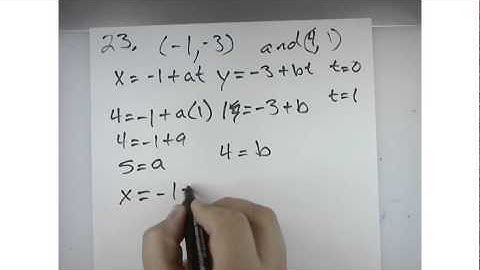 23. (-1,-3) and (4,1)
x = -1+at y = -3+bt t=0
t=1
4=-1+a(1) 1=-3+b
4=-1+a
5=a 4=b
x=-1